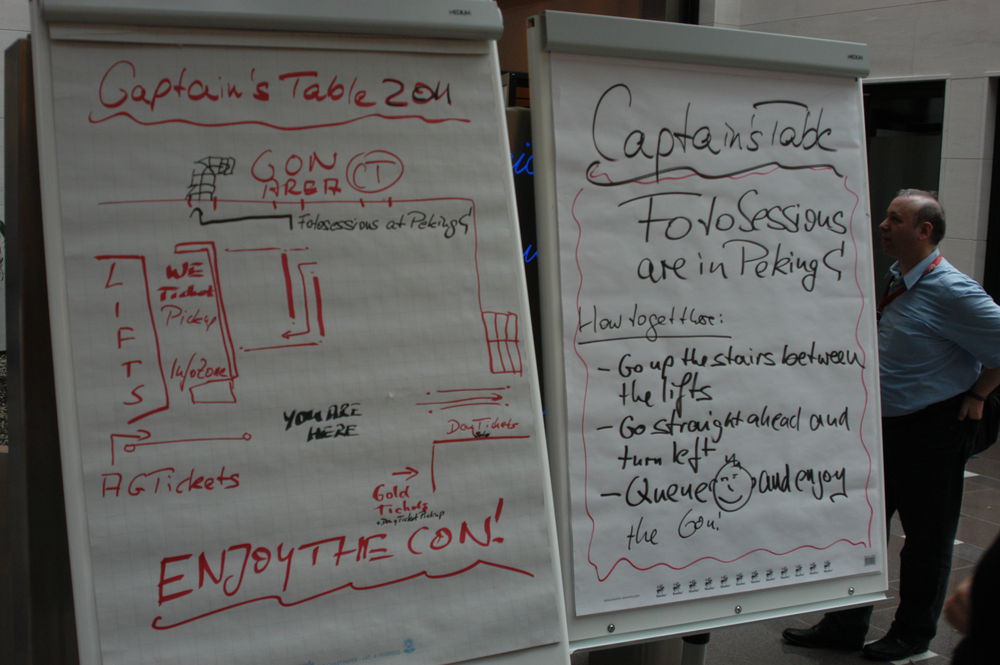 MEDIUM
Captain's Table 2011
CON
AREA
CT
Fotosessions at Peking
LIFTS
WE
Tickets
Pickup
Info Zone
YOU ARE
HERE
Day Tickets
AG Tickets
Gold
Tickets
+ Day Ticket Pickup
ENJOY THE CON!
MEDIUM
Captain's Table
FotoSessions
are in Peking
How to get there:
- Go up the stairs between
the lifts
- Go straight ahead and
turn left
- Queue and enjoy
the Con!